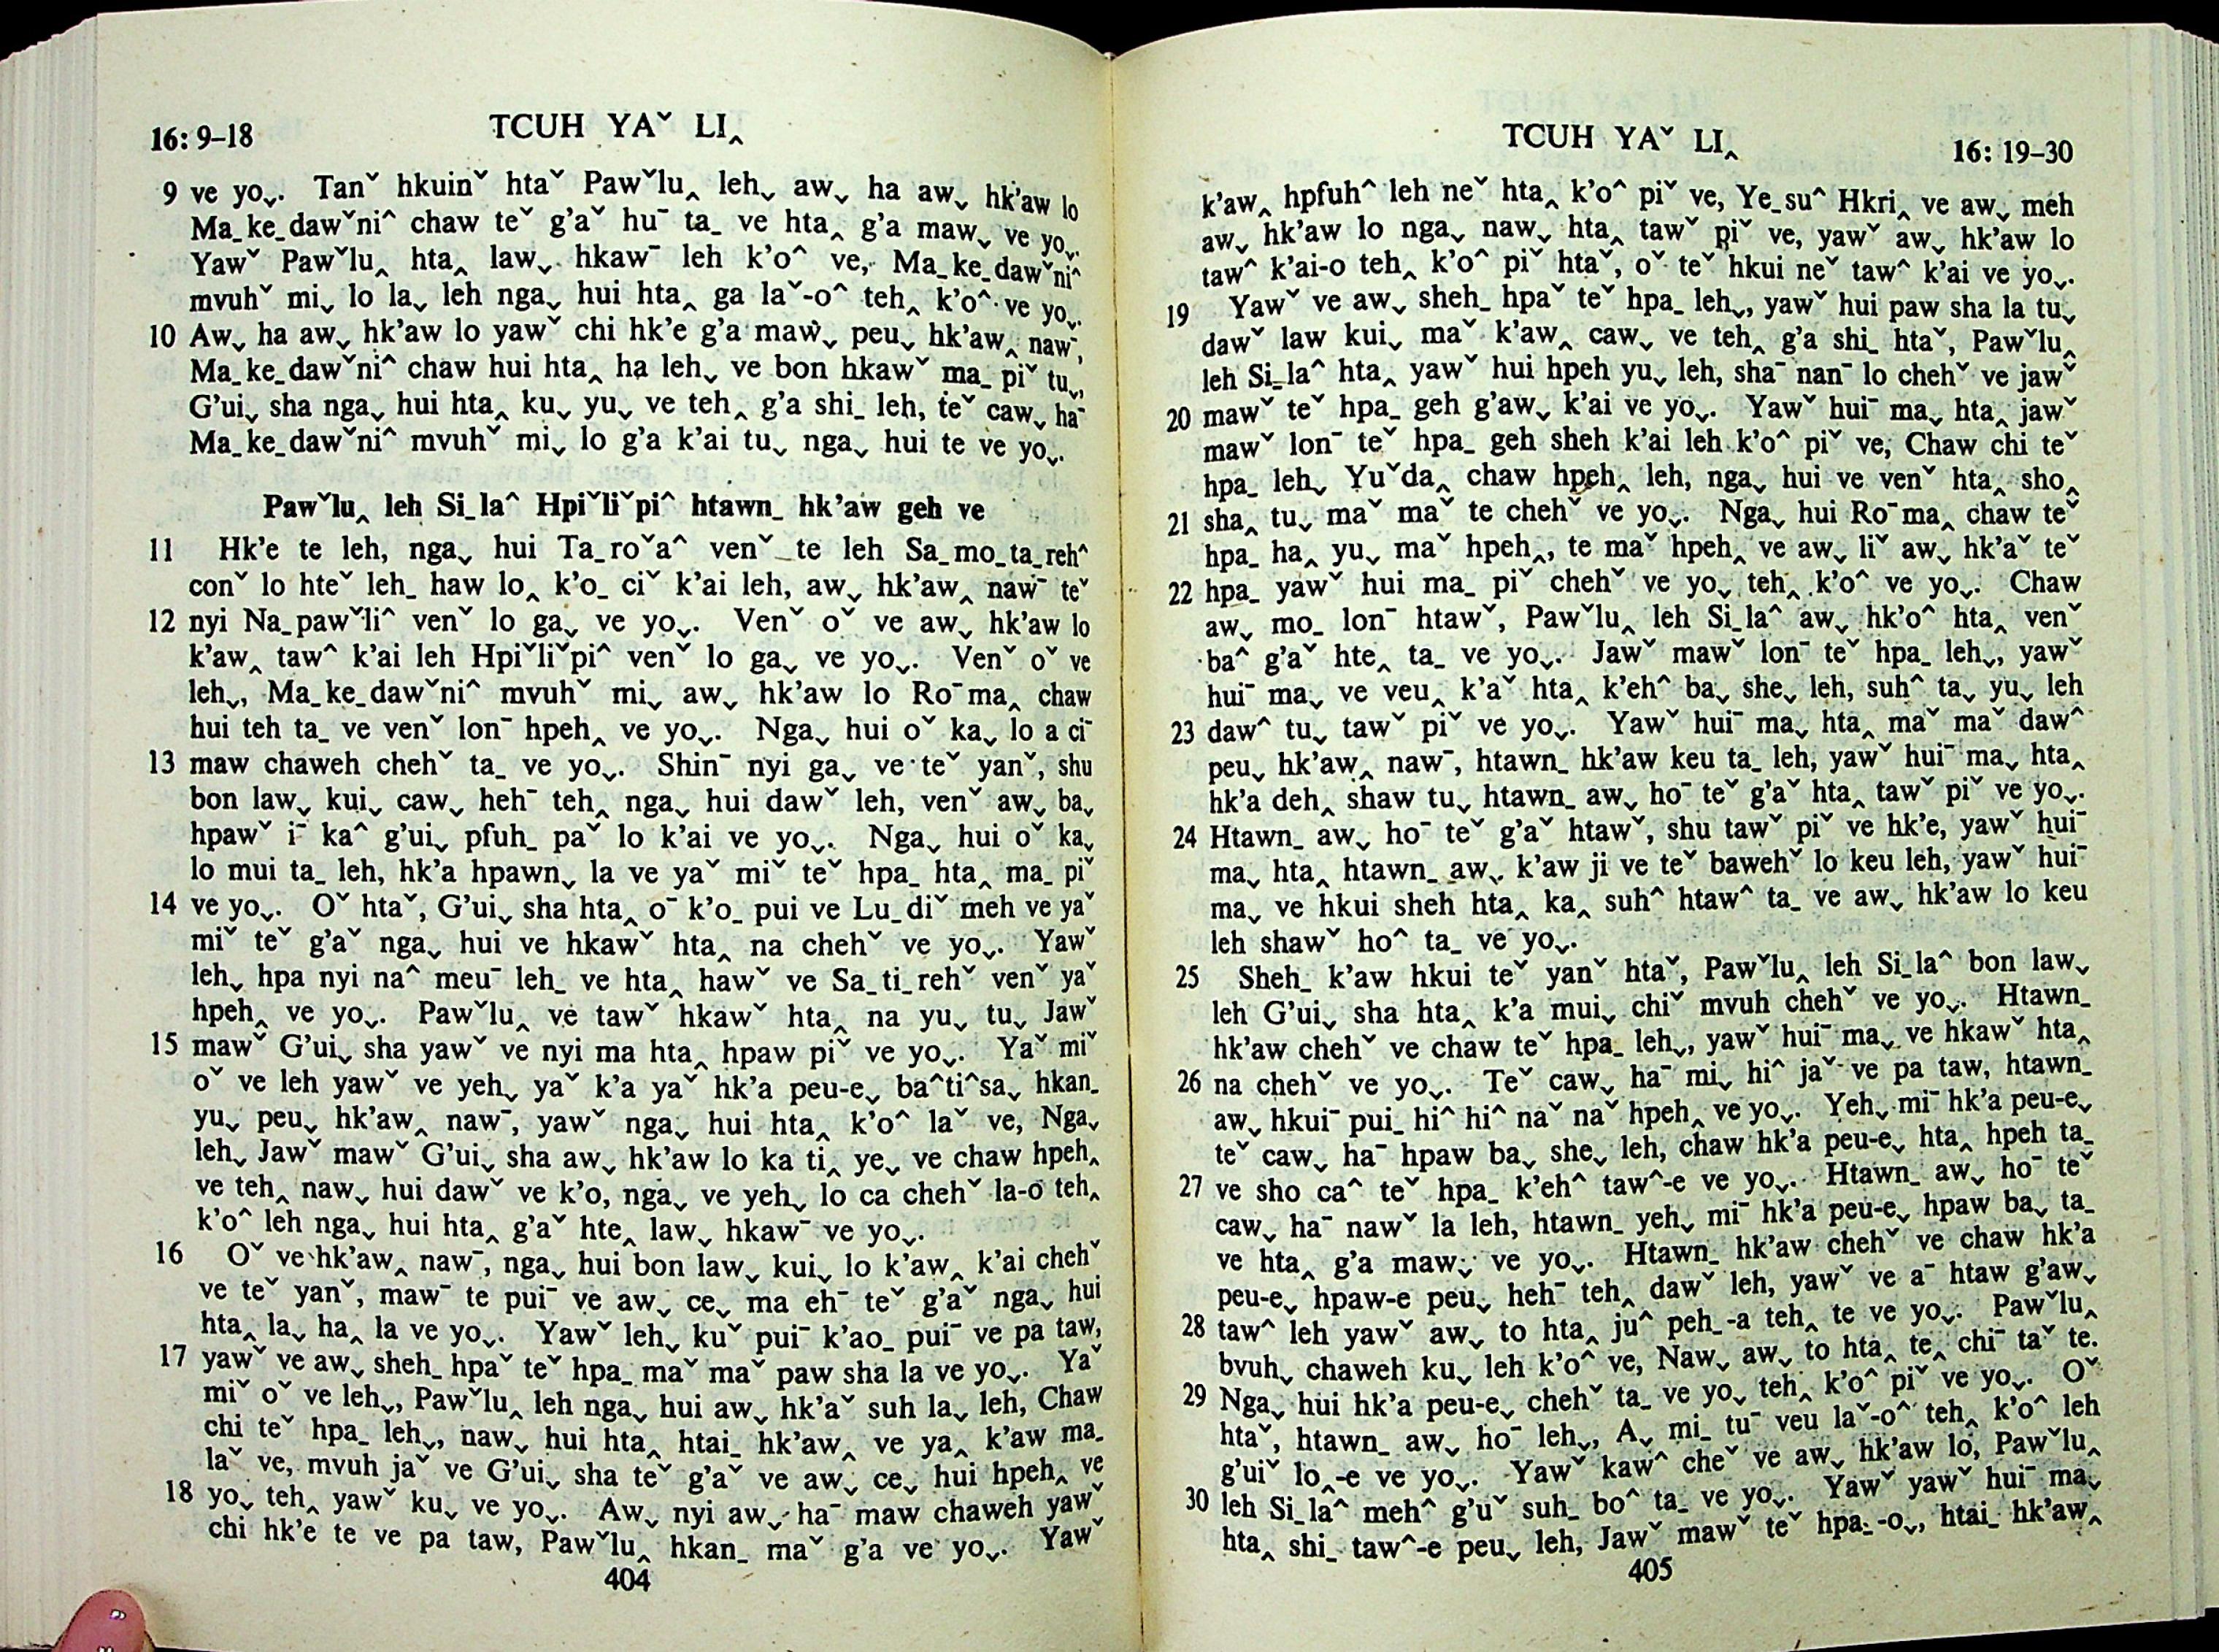 16: 9–18
TCUH YAˇ LI‸
9 ve yoˬ. Tanˇ hkuinˇ htaˇ Pawˇlu‸ lehˬ awˬ ha awˬ hk'aw lo
Ma_ke_dawˇniˆ chaw teˇ g'aˇ huˉ ta_ ve hta‸ g'a mawˬ ve yoˬ.
Yawˇ Pawˇlu‸ hta‸ lawˬ hkawˉ leh k'oˆ ve, Ma_ke_dawˇniˆ
mvuhˇ miˬ lo laˬ leh ngaˬ hui hta‸ ga laˇ-oˆ teh‸ k'oˆ ve yoˬ.
10 Awˬ ha awˬ hk'aw lo yawˇ chi hk'e g'a mawˬ peuˬ hk'aw‸ nawˉ,
Ma_ke_dawˇniˆ chaw hui hta‸ ha lehˬ ve bon hkawˇ ma_ piˇ tuˬ,
G'uiˬ sha ngaˬ hui hta‸ kuˬ yuˬ ve teh‸ g'a shi_ leh, teˇ cawˬ haˉ
Ma_ke_dawˇniˆ mvuhˇ miˬ lo g'a k'ai tuˬ ngaˬ hui te ve yoˬ.
Pawˇlu‸ leh Si_laˆ Hpiˇliˇpiˆ htawn_ hk'aw geh ve
11 Hk'e te leh, ngaˬ hui Ta_roˇaˆ venˇ te leh Sa_mo_ta_rehˆ
conˇ lo hteˇ leh_ haw lo‸ k'o_ ciˇ k'ai leh, awˬ hk'aw‸ nawˉ teˇ
12 nyi Na_pawˇliˆ venˇ lo gaˬ ve yoˬ. Venˇ oˇ ve awˬ hk'aw lo
k'aw‸ tawˆ k'ai leh Hpiˇliˇpiˆ venˇ lo gaˬ ve yoˬ. Venˇ oˇ ve
lehˬ, Ma_ke_dawˇniˆ mvuhˇ miˬ awˬ hk'aw lo Roˉma‸ chaw
hui teh ta_ ve venˇ lonˉ hpeh‸ ve yoˬ. Ngaˬ hui oˇ kaˬ lo a ciˉ
13 maw chaweh chehˇ ta_ ve yoˬ. Shinˉ nyi gaˬ ve teˇ yanˇ, shu
bon lawˬ kuiˬ cawˬ hehˉ teh‸ ngaˬ hui dawˇ leh, venˇ awˬ baˬ
hpawˇ iˉ kaˆ g'uiˬ pfuh_ paˇ lo k'ai ve yoˬ. Ngaˬ hui oˇ kaˬ
lo mui ta_ leh, hk'a hpawnˬ la ve yaˇ miˇ teˇ hpa_ hta‸ ma_ piˇ
14 ve yoˬ. Oˇ htaˇ, G'uiˬ sha hta‸ oˉ k'o_ pui ve Lu_diˇ meh ve yaˇ
miˇ teˇ g'aˇ ngaˬ hui ve hkawˇ hta‸ na chehˇ ve yoˬ. Yawˇ
lehˬ hpa nyi naˆ meuˉ leh_ ve hta‸ hawˇ ve Sa_ti_rehˇ venˇ yaˇ
hpeh‸ ve yoˬ. Pawˇlu‸ ve tawˇ hkawˇ hta‸ na yuˬ tuˬ Jawˇ
15 mawˇ G'uiˬ sha yawˇ ve nyi ma hta‸ hpaw piˇ ve yoˬ. Yaˇ miˇ
oˇ ve leh yawˇ ve yehˬ yaˇ k'a yaˇ hk'a peu-eˬ baˆtiˆsaˬ hkan_
yuˬ peuˬ hk'aw‸ nawˉ, yawˇ ngaˬ hui hta‸ k'oˆ laˇ ve, Ngaˬ
lehˬ Jawˇ mawˇ G'uiˬ sha awˬ hk'aw lo ka ti‸ yeˬ ve chaw hpeh‸
ve teh‸ nawˬ hui dawˇ ve k'o, ngaˬ ve yehˬ lo ca chehˇ la-o teh‸
k'oˆ leh ngaˬ hui hta‸ g'aˇ hte‸ lawˬ hkawˉ ve yoˬ.
16 Oˇ ve hk'aw‸ nawˉ, ngaˬ hui bon lawˬ kuiˬ lo k'aw‸ k'ai chehˇ
ve teˇ yanˇ, mawˉ te puiˉ ve awˬ ceˬ ma ehˉ teˇ g'aˇ ngaˬ hui
hta‸ laˬ ha‸ la ve yoˬ. Yawˇ lehˬ kuˇ puiˉ k'ao_ puiˉ ve pa taw,
17 yawˇ ve awˬ sheh_ hpaˇ teˇ hpa_ maˇ maˇ paw sha la ve yoˬ. Yaˇ
miˇ oˇ ve lehˬ, Pawˇlu‸ leh ngaˬ hui awˬ hk'aˇ suh laˬ leh, Chaw
chi teˇ hpa_ lehˬ, nawˬ hui hta‸ htai_ hk'aw‸ ve ya‸ k'aw ma_
laˇ ve, mvuh jaˇ ve G'uiˬ sha teˇ g'aˇ ve awˬ ceˬ hui hpeh‸ ve
18 yoˬ teh‸ yawˇ kuˬ ve yoˬ. Awˬ nyi awˬ haˉ maw chaweh yawˇ
chi hk'e te ve pa taw, Pawˇlu‸ hkan_ maˇ g'a ve yoˬ. Yawˇ
404
TCUH YAˇ LI‸
16: 19–30
k'aw‸ hpfuhˆ leh neˇ hta‸ k'oˆ piˇ ve, Ye_suˆ Hkri‸ ve awˬ meh
awˬ hk'aw lo ngaˬ nawˬ hta‸ tawˇ piˇ ve, yawˇ awˬ hk'aw lo
tawˆ k'ai-o teh‸ k'oˆ piˇ htaˇ, oˇ teˇ hkui neˇ tawˆ k'ai ve yoˬ.
19 Yawˇ ve awˬ sheh_ hpaˇ teˇ hpa_ lehˬ, yawˇ hui paw sha la tuˬ
dawˇ law kuiˬ maˇ k'aw‸ cawˬ ve teh‸ g'a shi_ htaˇ, Pawˇlu‸
leh Si_laˆ hta‸ yawˇ hui hpeh yuˬ leh, shaˉ nanˉ lo chehˇ ve jawˇ
20 mawˇ teˇ hpa_ geh g'awˬ k'ai ve yoˬ. Yawˇ huiˉ maˬ hta‸ jawˇ
mawˇ lonˉ teˇ hpa_ geh sheh k'ai leh k'oˆ piˇ ve, Chaw chi teˇ
hpa_ lehˬ Yuˇda‸ chaw hpeh‸ leh, ngaˬ hui ve venˇ hta‸ sho‸
21 sha‸ tuˬ maˇ maˇ te chehˇ ve yoˬ. Ngaˬ hui Roˉma‸ chaw teˇ
hpa_ ha‸ yuˬ maˇ hpeh‸, te maˇ hpeh‸ ve awˬ liˇ awˬ hk'aˇ teˇ
22 hpa_ yawˇ hui ma_ piˇ chehˇ ve yoˬ teh‸ k'oˆ ve yoˬ. Chaw
awˬ mo_ lonˉ htawˇ, Pawˇlu‸ leh Si_laˆ awˬ hk'oˆ hta‸ venˇ
baˆ g'aˇ hte‸ ta_ ve yoˬ. Jawˇ mawˇ lonˉ teˇ hpa_ lehˬ, yawˇ
huiˉ maˬ ve veu‸ k'aˇ hta‸ k'ehˆ baˬ sheˬ leh, suhˆ taˬ yuˬ leh
23 dawˆ tuˬ tawˇ piˇ ve yoˬ. Yawˇ huiˉ maˬ hta‸ maˇ maˇ dawˆ
peuˬ hk'aw‸ nawˉ, htawn_ hk'aw keu ta_ leh, yawˇ huiˉ maˬ hta‸
hk'a deh‸ shaw tuˬ htawn_ awˬ hoˉ teˇ g'aˇ hta‸ tawˇ piˇ ve yoˬ.
24 Htawn_ awˬ hoˉ teˇ g'aˇ htawˇ, shu tawˇ piˇ ve hk'e, yawˇ huiˉ
maˬ hta‸ htawn_ awˬ k'aw ji ve teˇ bawehˇ lo keu leh, yawˇ huiˉ
maˬ ve hkui sheh hta‸ ka‸ suhˆ htawˆ ta_ ve awˬ hk'aw lo keu
leh shawˇ hoˆ ta_ ve yoˬ.
25 Sheh_ k'aw hkui teˇ yanˇ htaˇ, Pawˇlu‸ leh Si_laˆ bon lawˬ
leh G'uiˬ sha hta‸ k'a muiˬ chiˇ mvuh chehˇ ve yoˬ. Htawn_
hk'aw chehˇ ve chaw teˇ hpa_ lehˬ, yawˇ huiˉ maˬ ve hkawˇ hta‸
26 na chehˇ ve yoˬ. Teˇ cawˬ haˉ miˬ hiˆ jaˇ ve pa taw, htawn_
awˬ hkuiˉ pui_ hiˆ hiˆ naˇ naˇ hpeh‸ ve yoˬ. Yehˬ miˉ hk'a peu-eˬ
teˇ cawˬ haˉ hpaw baˬ sheˬ leh, chaw hk'a peu-eˬ hta‸ hpeh ta_
27 ve sho caˆ teˇ hpa_ k'ehˆ tawˆ-e ve yoˬ. Htawn_ awˬ hoˉ teˇ
cawˬ haˉ nawˇ la leh, htawn_ yehˬ miˉ hk'a peu-eˬ hpaw baˬ ta_
ve hta‸ g'a mawˬ ve yoˬ. Htawn_ hk'aw chehˇ ve chaw hk'a
peu-eˬ hpaw-e peuˬ hehˉ teh‸ dawˇ leh, yawˇ ve aˉ htaw g'awˬ
28 tawˆ leh yawˇ awˬ to hta‸ juˆ peh_-a teh‸ te ve yoˬ. Pawˇlu‸
bvuhˬ chaweh kuˬ leh k'oˆ ve, Nawˬ awˬ to hta‸ te‸ chiˉ taˇ te.
29 Ngaˬ hui hk'a peu-eˬ chehˇ ta_ ve yoˬ teh‸ k'oˆ piˇ ve yoˬ. Oˇ
htaˇ, htawn_ awˬ hoˉ lehˬ, Aˬ mi_ tuˉ veu laˇ-oˆ teh‸ k'oˆ leh
g'uiˇ lo‸-e ve yoˬ. Yawˇ kawˆ cheˇ ve awˬ hk'aw lo, Pawˇlu‸
30 leh Si_laˆ mehˆ g'uˇ suh_ boˆ ta_ ve yoˬ. Yawˇ yawˇ huiˉ maˬ
hta‸ shi_ tawˆ-e peuˬ leh, Jawˇ mawˇ teˇ hpa_-oˬ, htai_ hk'aw‸
405